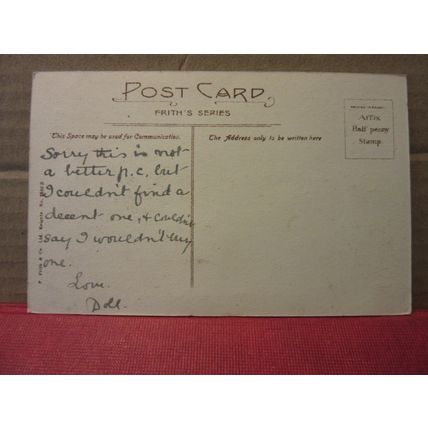 POST CARD
FRITH'S SERIES
This Space may be used for Communication.
The Address only to be written here
Affix
Half penny
Stamp.
Sorry this is not
a better p.c. but
I couldn't find a
decent one, & couldn't
say I wouldn't buy
one.
Love.
Doll.